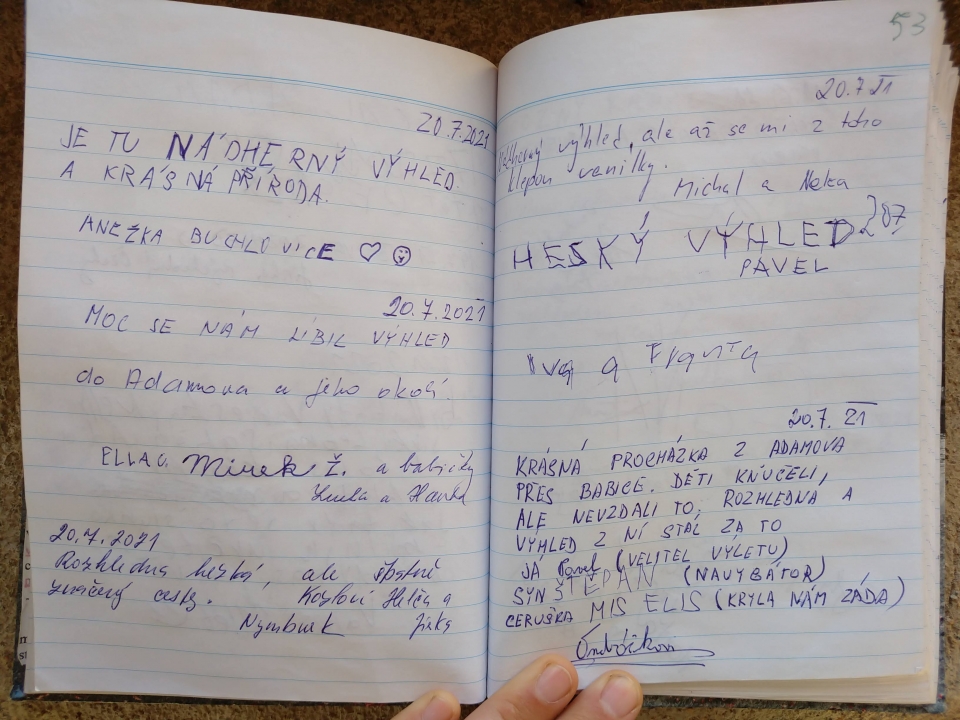 20.7.2021
JE TU NÁDHERNÝ VÝHLED.
A KRÁSNÁ PŘÍRODA.
ANEŽKA BUCHLOVICE
20.7.2021
MOC SE NÁM LÍBIL VÝHLED
do Adamova a jeho okolí.
ELLA O. Mirek Ž. a babičky
a Hanka
20.7.2021
Rozhledna hezká, ale špatně
značený cesty. Kozlovi Helča a
Nymburk Jirka
53
20.7.21
výhled, ale až se mi z toho
klepou vanilky.
Michal a
HESKÝ VÝHLED 207
PAVEL
a Franta
20.7.21
KRÁSNÁ PROCHÁZKA Z ADAMOVA
PŘES BABICE. DĚTI KŇUČELI,
ALE NEVZDALI TO, ROZHLEDNA A
VÝHLED Z NÍ STÁL ZA TO
JÁ Pavel (VELITEL VÝLETU)
SYN ŠTĚPÁN (NAVYGÁTOR)
CERUŠKA MIS ELIS (KRYLA NÁM ZÁDA)